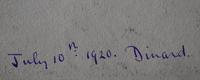 July 10th 1920. Dinard.